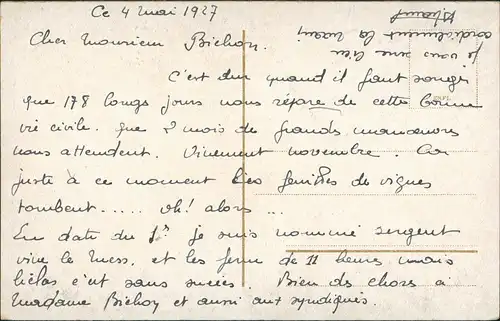 Ce 4 mai 1927
Cher Monsieur Bichon.
C'est dur quand il faut songer
que 178 longs jours nous sépare de cette bonne
vie civile. que 2 mois de grandes manœuvres
nous attendent. Vivement novembre. Car
juste à ce moment les feuilles de vignes
tombent..... oh! alors ...
En date du 1er je suis nommé sergent
vive le mess. et les perm de 11 heures mais
hélas c'est sans succès. Bien des choses à
Madame Bichon et aussi aux syndiqués.
je vous serre bien
cordialement la main